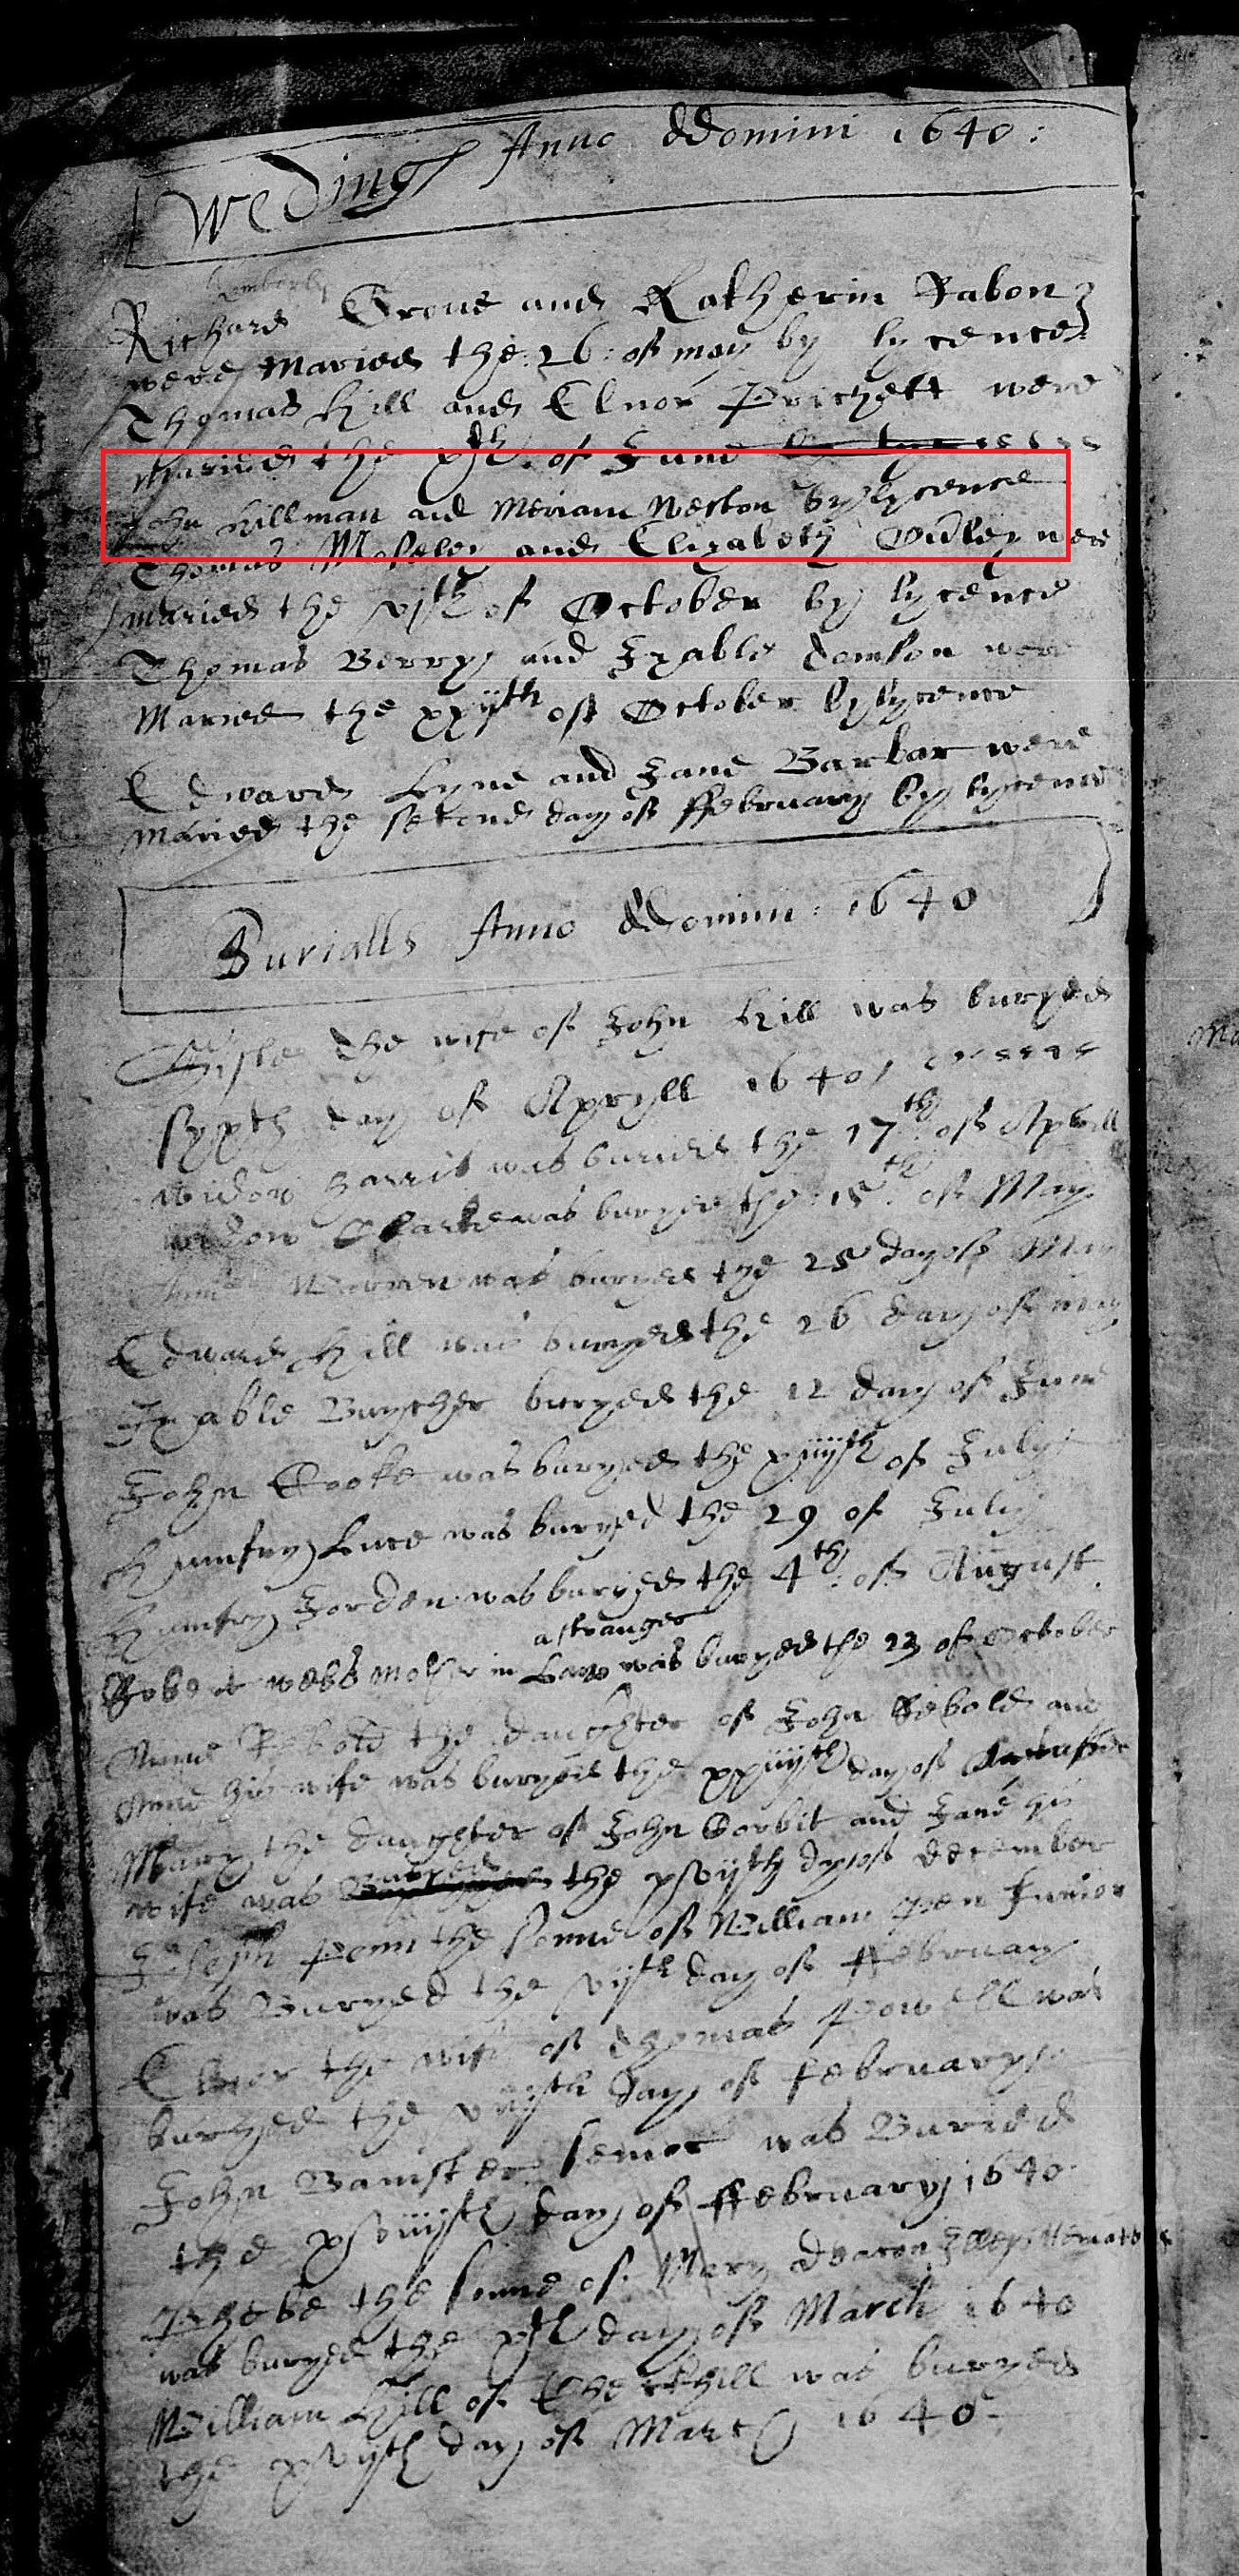 Wedings Anno DDomini 1640:
Richard Grove and Katherin Rabon
were Maried the: 26: of may by lycence
Thomas Hill and Elnor Prichett were
Maried the xth. of June
John Hillman and Meriam Weston by lycence
Thomas Moseley and Elizabeth Dudley were
maried the vjth of October by lycence
Thomas Berry and Izable Tomson were
Maried the xxijth of October by lycence
Edward Lyne and Jane Barbar were
maried the second day of ffebruary by lycence
Burialls Anno DDomini: 1640
the wife of John Hill was buryed
syxth day of Apryll 1640
Widow Harris was buried the 17th. of Aprill
widow Clarke was buryed the: 15th. of May
was buryed the 25 day of May
Edward Hill was buryed the 26 day of may
Izable Buycher buryed the 12 day of June
John Cooke was buryed the xiiijth of July
Humfry Luce was buryed the 29 of July
Humfry Jorden was buryed the 4th: of August
a stranger
Robert webb mother in Law was buryed the 23 of October
Anne Sebold the daughter of John Sebold and
Anne his wife was buryed the xxiiijth day of
Mary the daughter of John Corbit and Jane his
wife was buryed the xvijth day of december
Joseph Penn the sonne of William Pen Junior
was Buryed the vijth day of ffebruary
Elnor the wife of Thomas Powell was
buryed the day of februarye
John Banister senior was Buried
the xviiijth day of ffebruary 1640
Phebe the sonne of Mary deacon
was buryed the xth day of March 1640
William Hill of the Hill was buryed
the xvijth day of March 1640